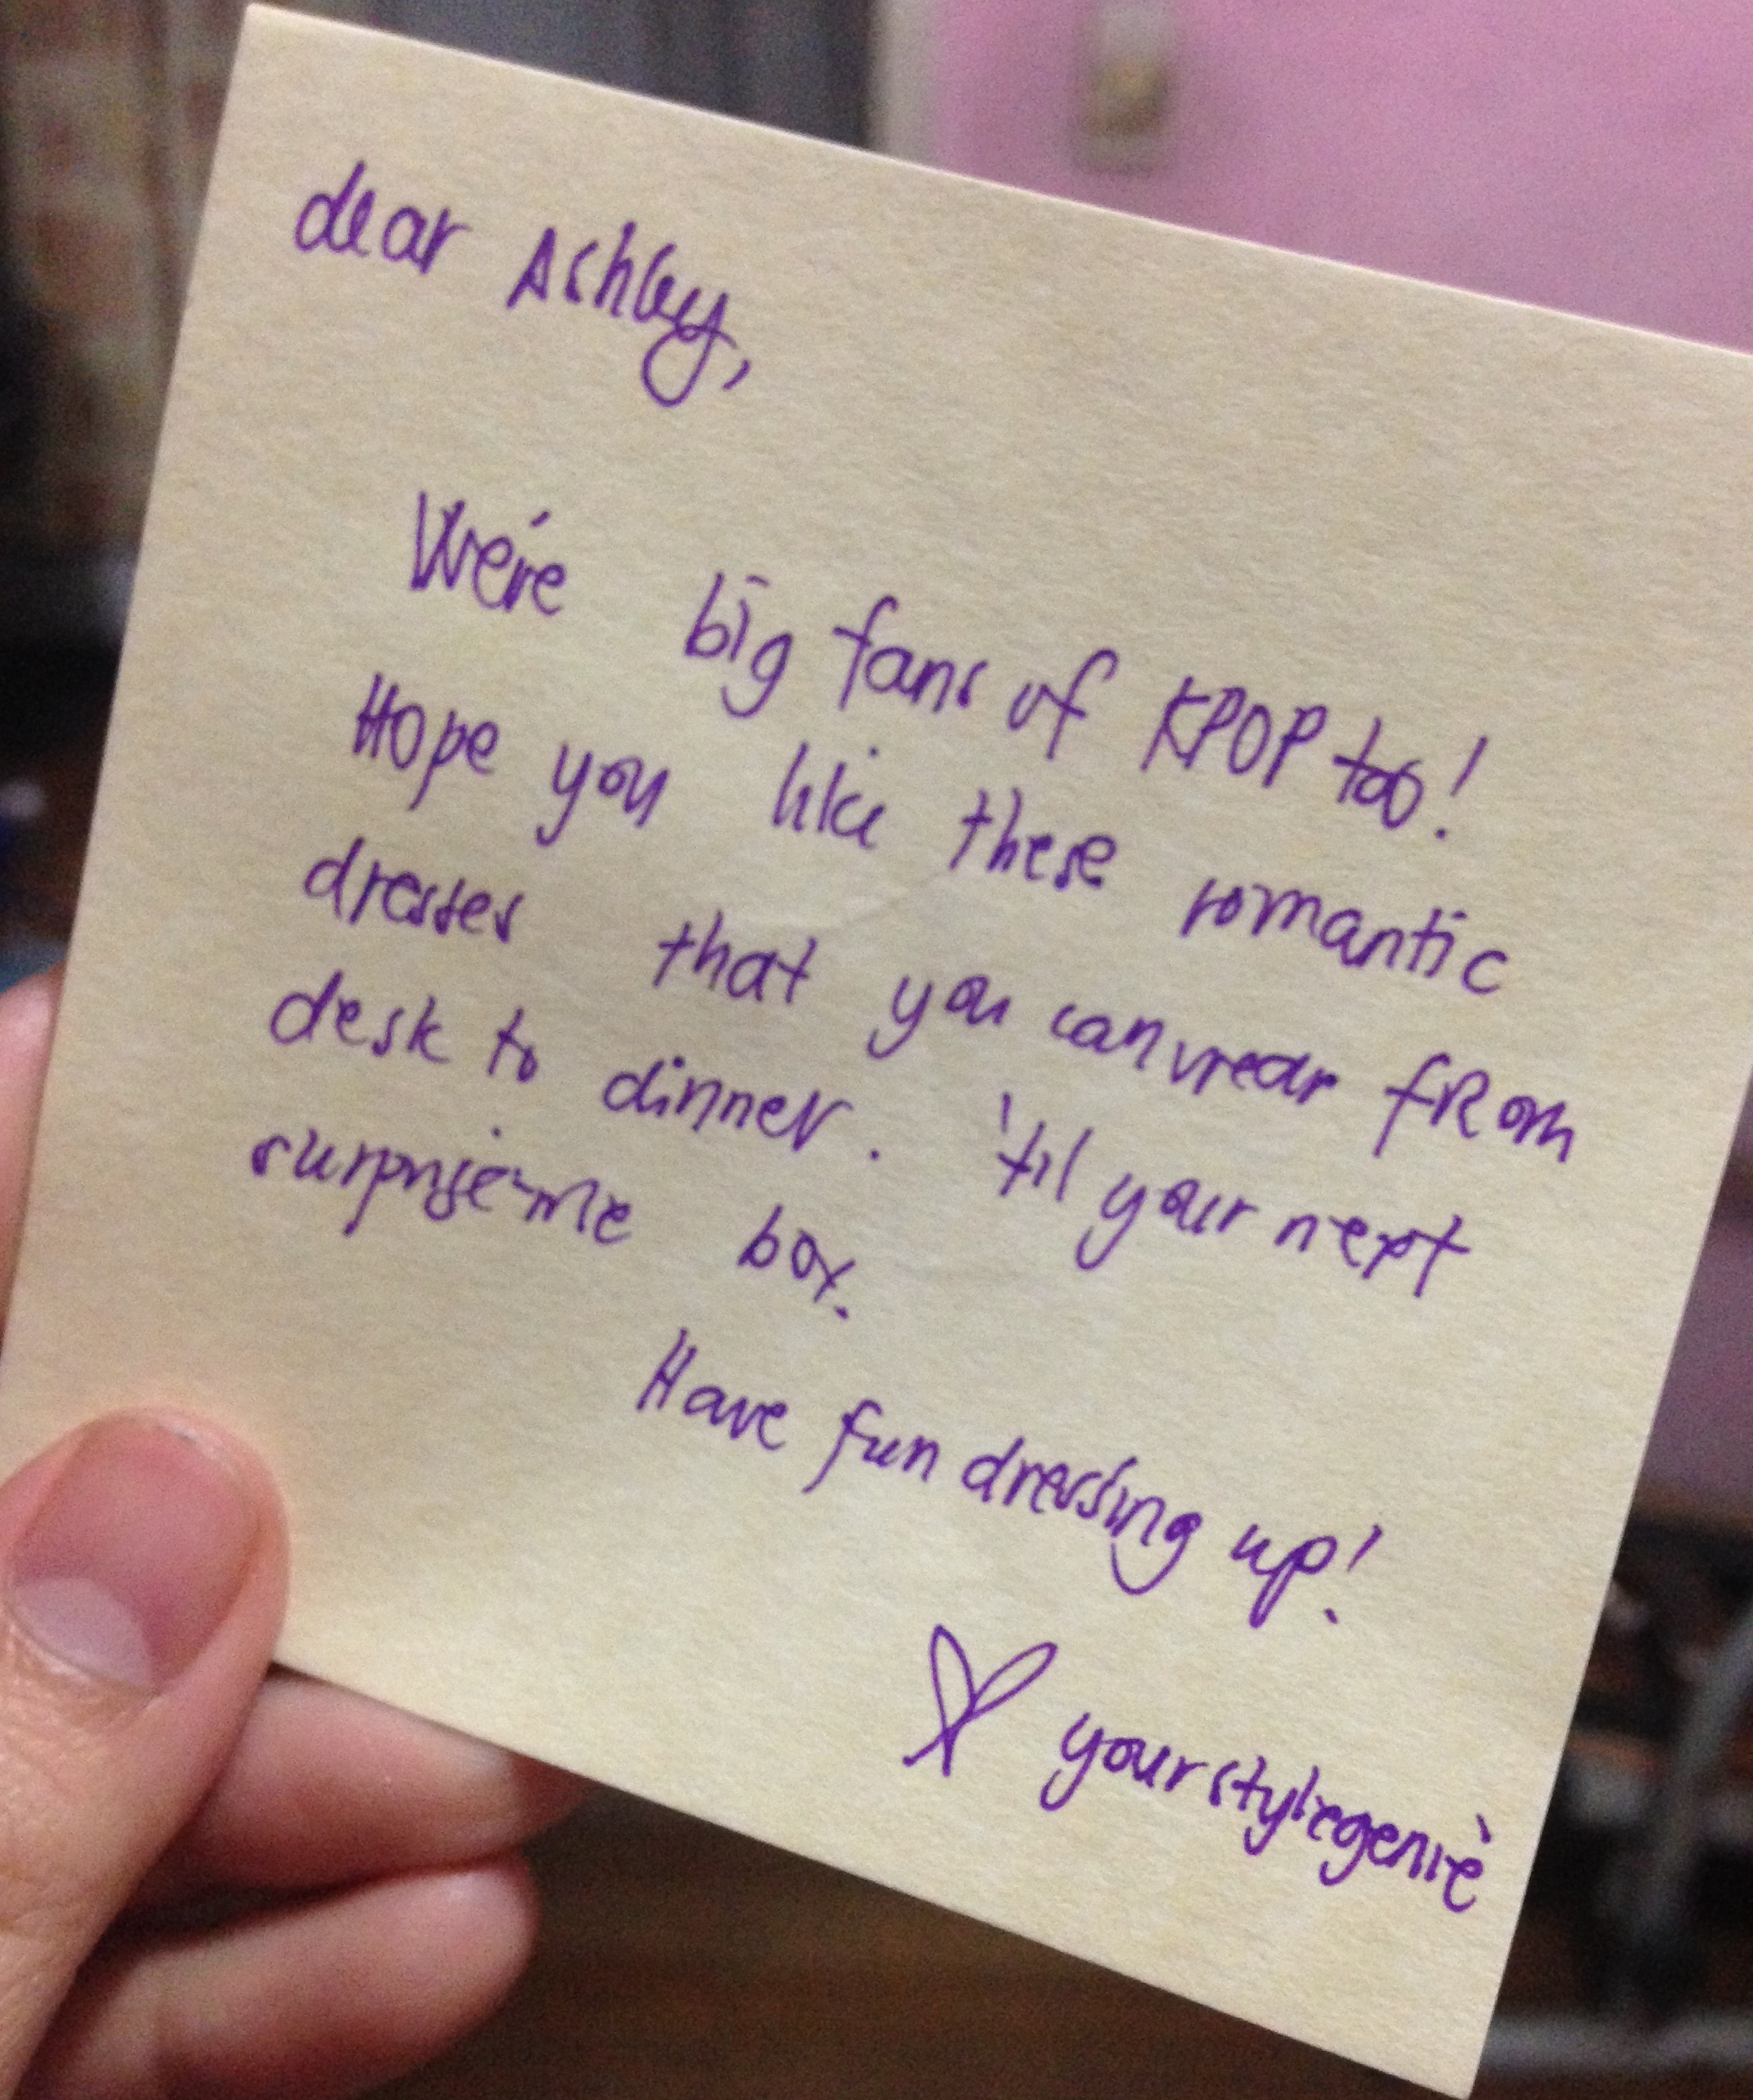 dear Ashley,
We're big fans of KPOP too!
Hope you like these romantic
dresses that you can wear from
desk to dinner. 'til your next
surprise-me box.
Have fun dressing up!
yourstylegenie